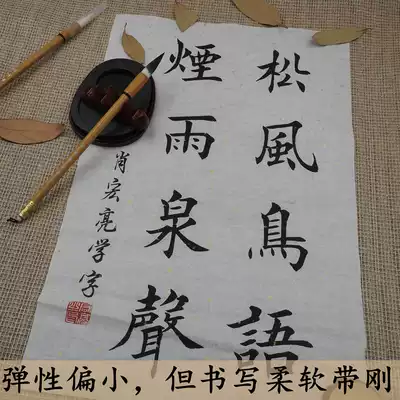 松風鳥語
煙雨泉聲
肖宏亮学字
弹性偏小，但书写柔软带刚